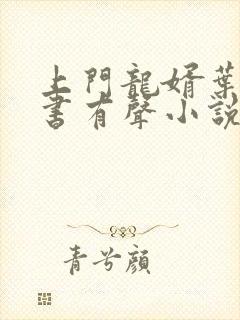 上門龍婿葉
書有聲小說
青兮顏